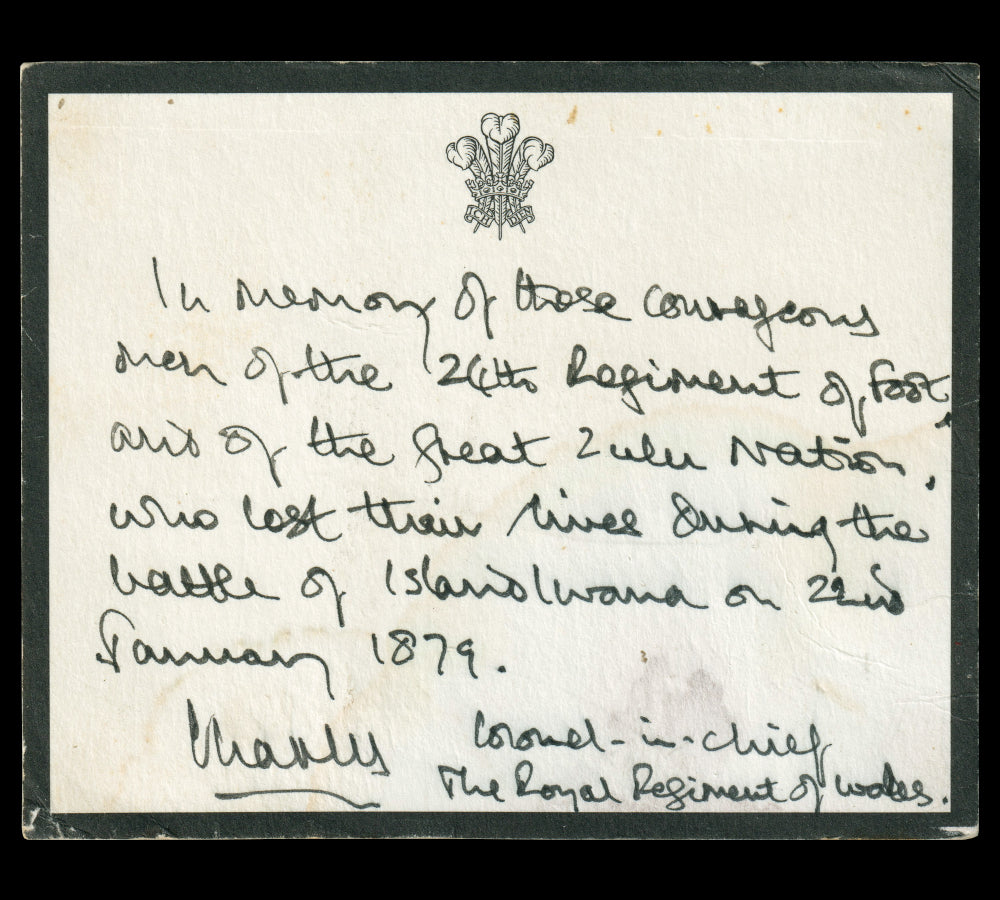 ICH DIEN
In memory of those courageous
men of the 24th Regiment of Foot,
and of the great Zulu Nation,
who lost their lives during the
battle of Islandlwana on 22nd
January 1879.
Charles Colonel-in-Chief
The Royal Regiment of Wales.